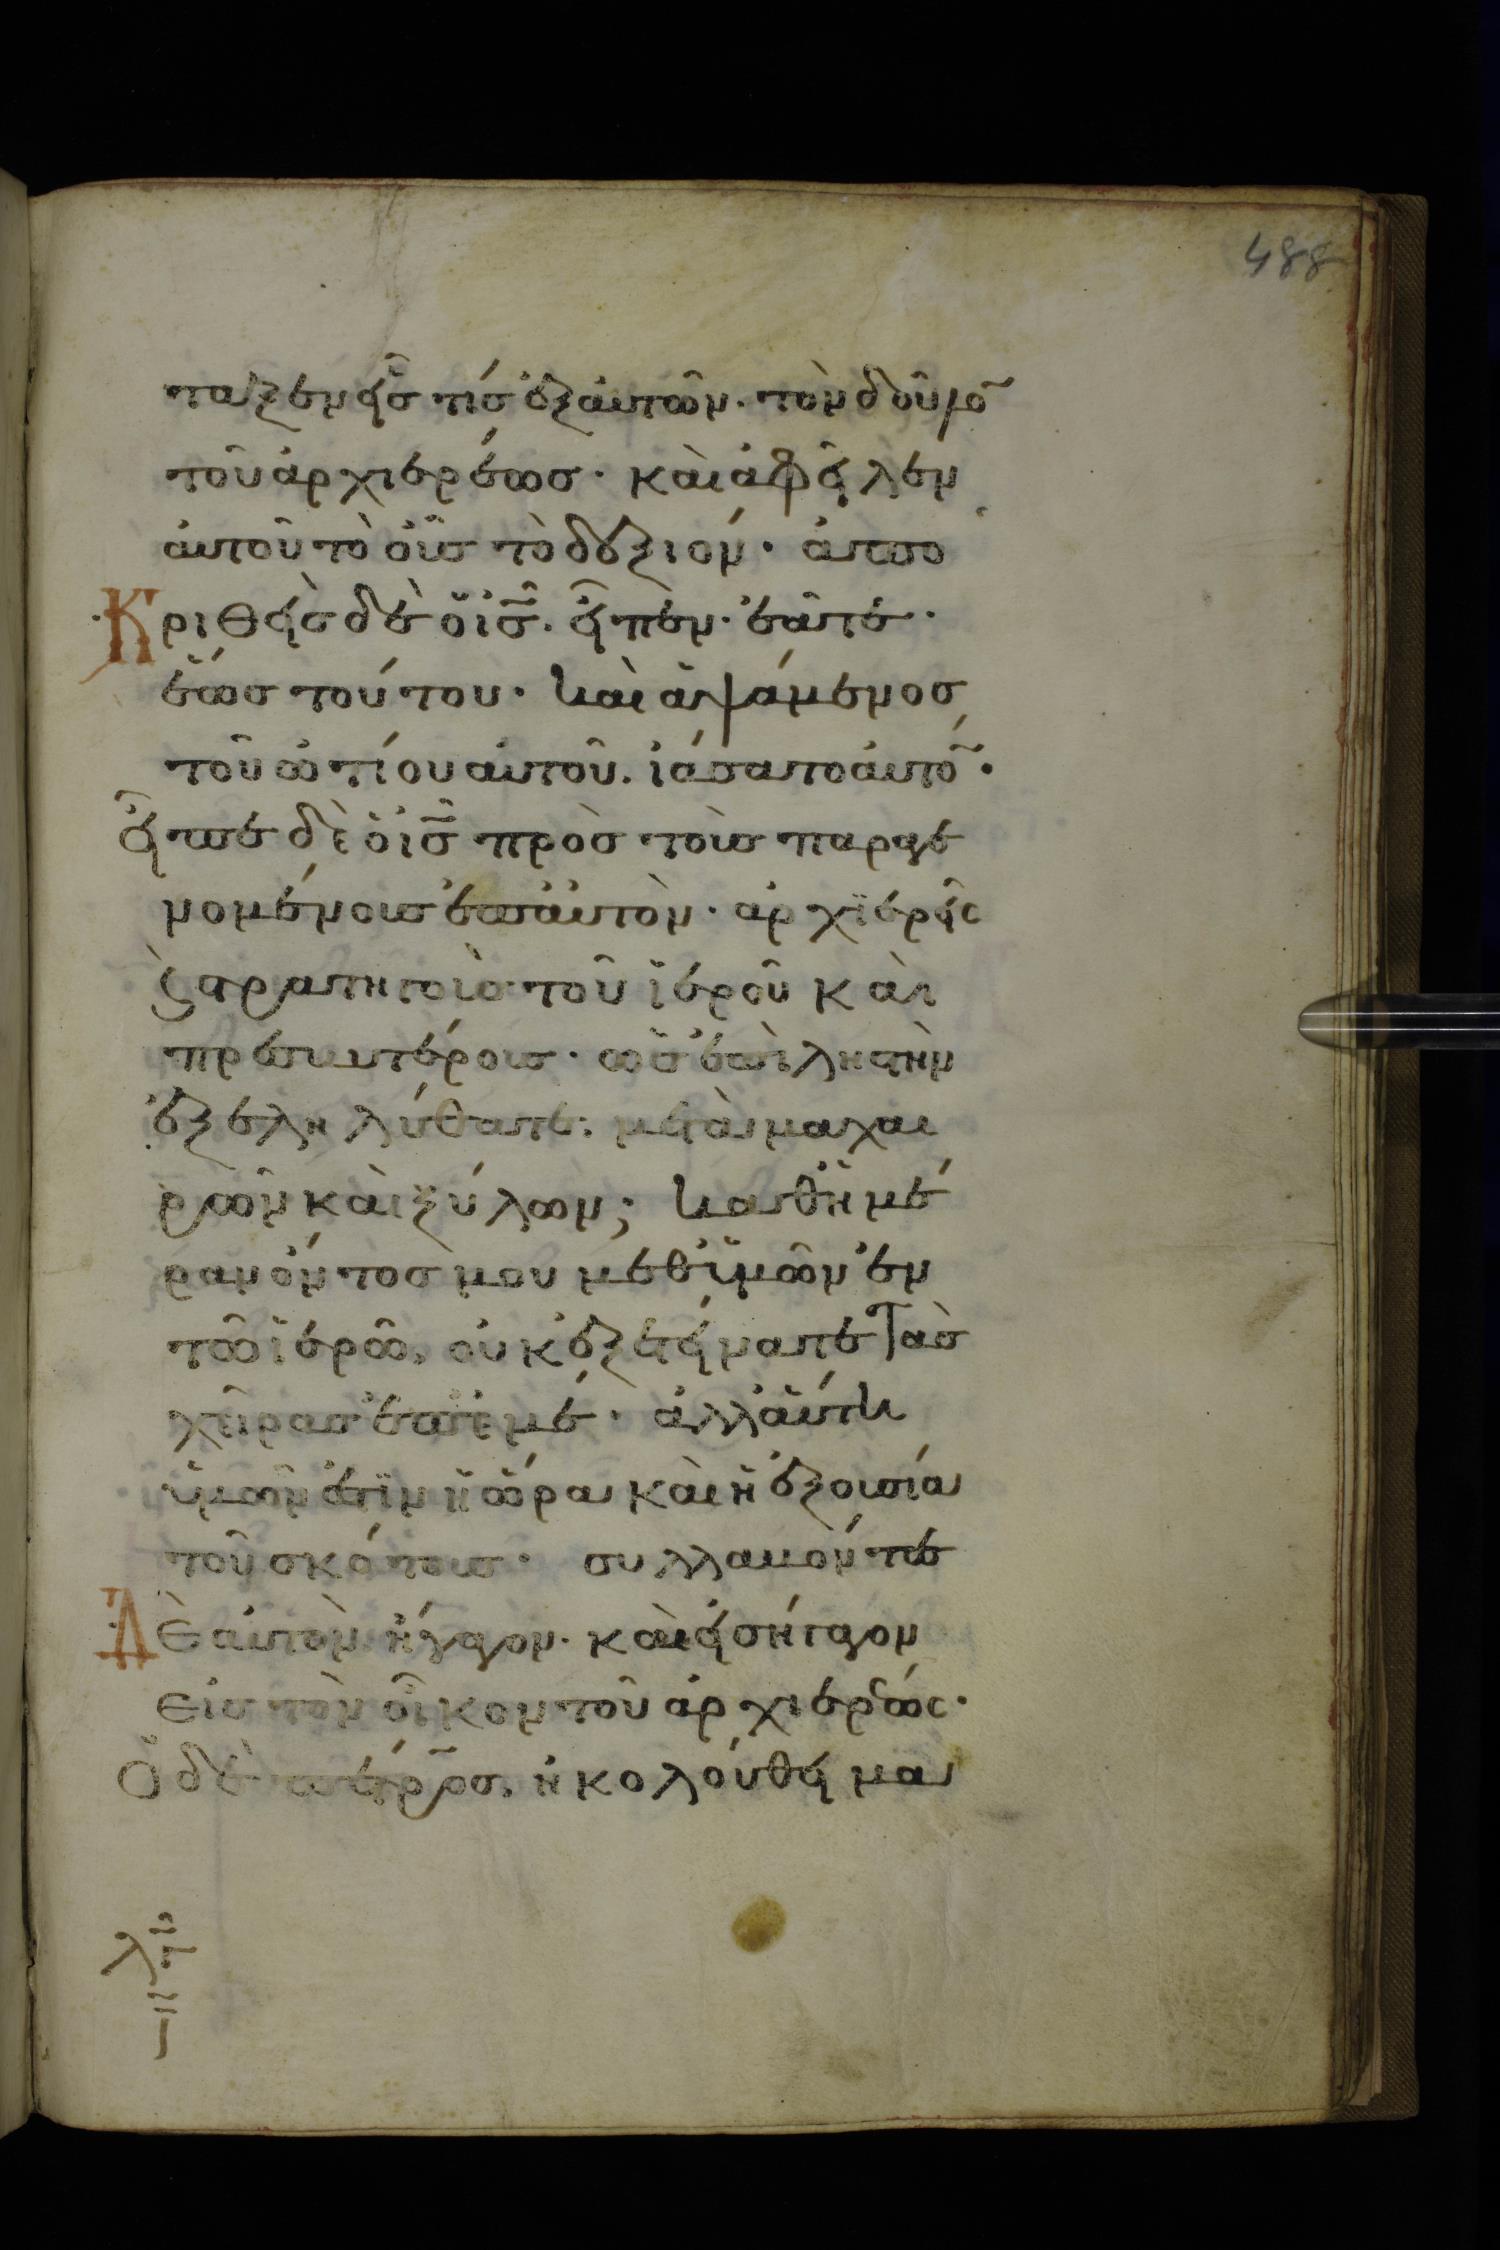 488
ταξεν εἷς τίς ἐξ αὐτῶν· τὸν δοῦλο̃
τοῦ ἀρχιερέωσ· καὶ ἀφεῖλεν
αὐτοῦ τὸ οὖς τὸ δεξιόν· ἀπο
Κριθεὶς δὲ ὁ ις̅. εἶπεν· ἐᾶτε·
ἕως τούτου· καὶ ἁψάμενοσ
τοῦ ὠτίου αὐτοῦ. ἰάσατο αὐτο̃·
εἶπε δὲ ὁ ις̅ πρὸσ τοὺσ παραγε
νομένους ἐπ' αὐτὸν· ἀρχϊερεῖς
ϛρατηγοὺσ τοῦ ἱεροῦ καὶ
πρεσβυτέρους· ὡς ἐπὶ ληστὴν
ἐξεληλύθατε· μετὰ μαχαι
ρῶν καὶ ξύλων; καθ' ἡμέ
ραν ὄντοσ μου μεθ' ὑμῶν ἐν
τῶ ἱερῶ, οὐκ ἐξετείνατε τὰσ
χεῖρας ἐπ' ἐμέ· ἀλλ' αὕτη
ὑμῶν ἐστὶν ἡ ὥρα καὶ ἡ ἐξουσία
τοῦ σκότους· συλλαβόντεσ
Δ Ὲ αὐτὸν ἤγαγον· καὶ εἰσήγαγον
εἰς τὸν οἶκον τοῦ ἀρχιερέως·
Ὁ δὲ πέτρος. ἠκολούθει μα